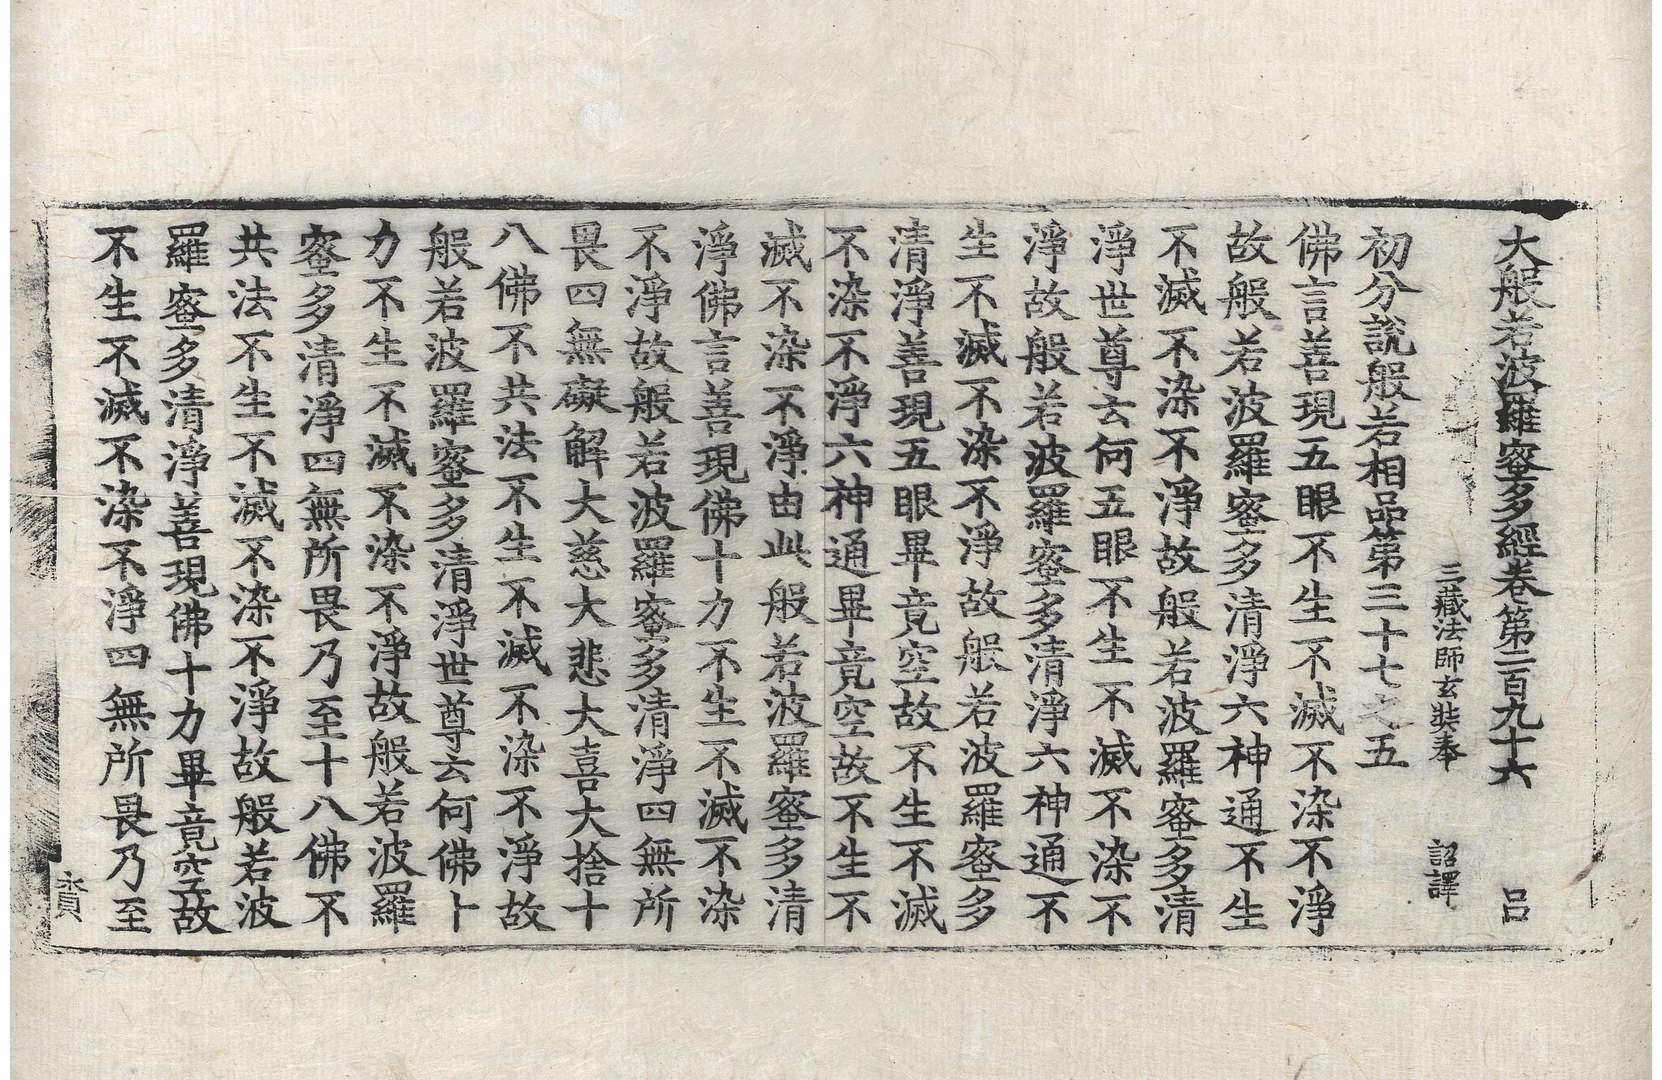 大般若波羅蜜多經卷第二百九十六 吕
三藏法師玄奘奉 詔譯
初分說般若相品第三十七之五
佛言善現五眼不生不滅不染不淨
故般若波羅蜜多清淨六神通不生
不滅不染不淨故般若波羅蜜多清
淨世尊云何五眼不生不滅不染不
淨故般若波羅蜜多清淨六神通不
生不滅不染不淨故般若波羅蜜多
清淨善現五眼畢竟空故不生不滅
不染不淨六神通畢竟空故不生不
滅不染不淨由此般若波羅蜜多清
淨佛言善現佛十力不生不滅不染
不淨故般若波羅蜜多清淨四無所
畏四無礙解大慈大悲大喜大捨十
八佛不共法不生不滅不染不淨故
般若波羅蜜多清淨世尊云何佛十
力不生不滅不染不淨故般若波羅
蜜多清淨四無所畏乃至十八佛不
共法不生不滅不染不淨故般若波
羅蜜多清淨善現佛十力畢竟空故
不生不滅不染不淨四無所畏乃至